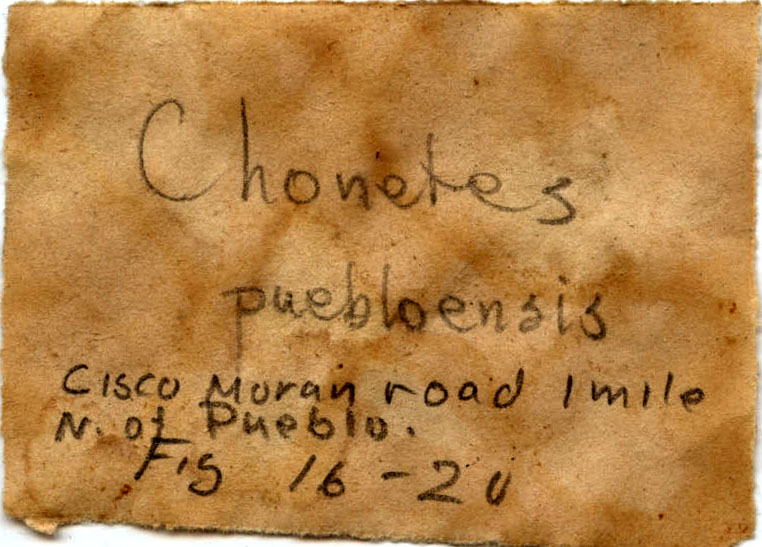 Chonetes
puebloensis
Cisco Moran road 1 mile
N. of Pueblo.
Fig 16-20